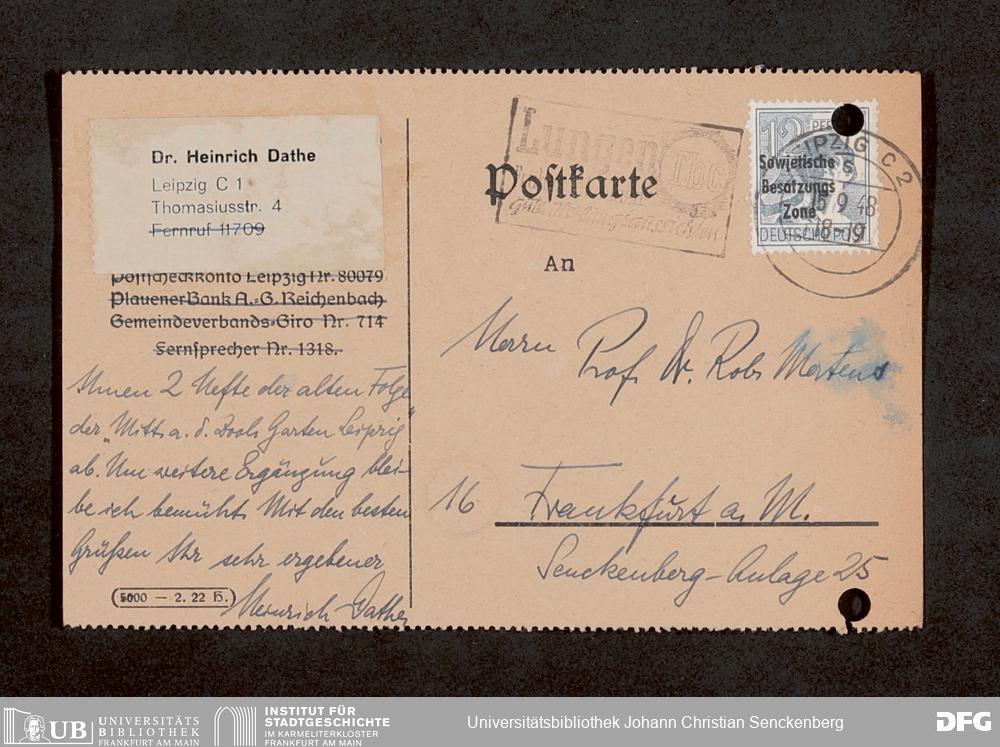 Dr. Heinrich Dathe
Leipzig C 1
Thomasiusstr. 4
Fernruf 11709
Postscheckkonto Leipzig Nr. 80079
Plauener Bank A.-G. Reichenbach
Gemeindeverbands-Giro Nr. 714
Fernsprecher Nr. 1318.
Ihnen 2 Hefte der alten Folge
der „Mitt. a. d. Zool. Garten Leipzig"
ab. Um weitere Ergänzung blei-
be ich bemüht. Mit den besten
Grüßen Ihr sehr ergebener
Heinrich Dathe
5000 — 2. 22 H.
Lungen
Tbc
Postkarte
12 PFENNIG
Sowjetische
Besatzungs
Zone
DEUTSCHE POST
LEIPZIG C 2
15 9 48
18-19
An
Herrn
Prof. Dr. Rob. Mertens
16 Frankfurt a. M.
Senckenberg-Anlage 25
UB UNIVERSITÄTS
BIBLIOTHEK
FRANKFURT AM MAIN
INSTITUT FÜR
STADTGESCHICHTE
IM KARMELITERKLOSTER
FRANKFURT AM MAIN
Universitätsbibliothek Johann Christian Senckenberg
DFG